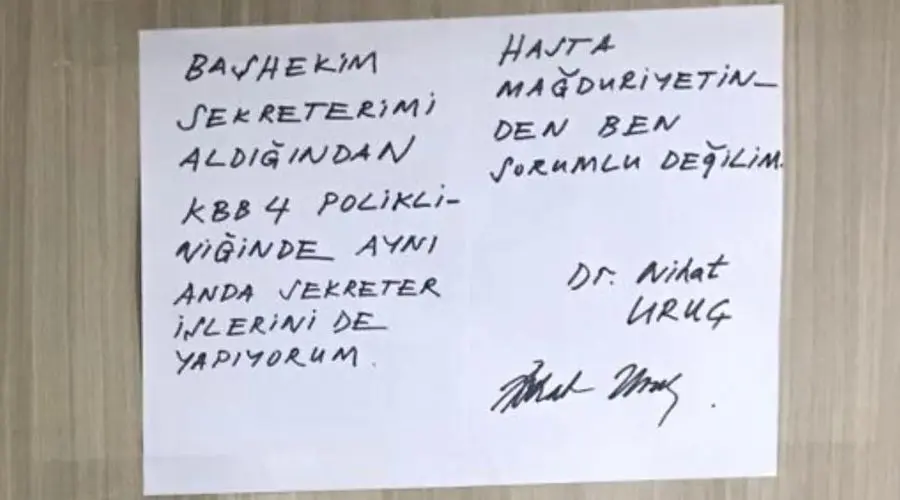 BAŞHEKİM
SEKRETERİMİ
ALDIĞINDAN
KBB 4 POLİKLİ-
NİĞİNDE AYNI
ANDA SEKRETER
İŞLERİNİ DE
YAPIYORUM.
HASTA
MAĞDURİYETİN-
DEN BEN
SORUMLU DEĞİLİM.
Dr. Nihat
URUÇ
Nihat Uruç